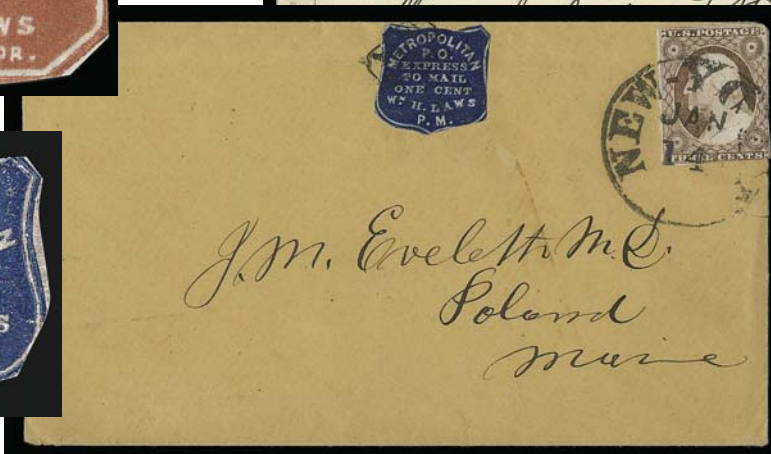 WS
OR.
METROPOLITAN
P.O.
EXPRESS
TO MAIL
ONE CENT
WM H. LAWS
P.M.
U.S. POSTAGE
THREE CENTS
NEW YO
JAN
14
S
J. M. Eveleth M.D.
Poland
Maine